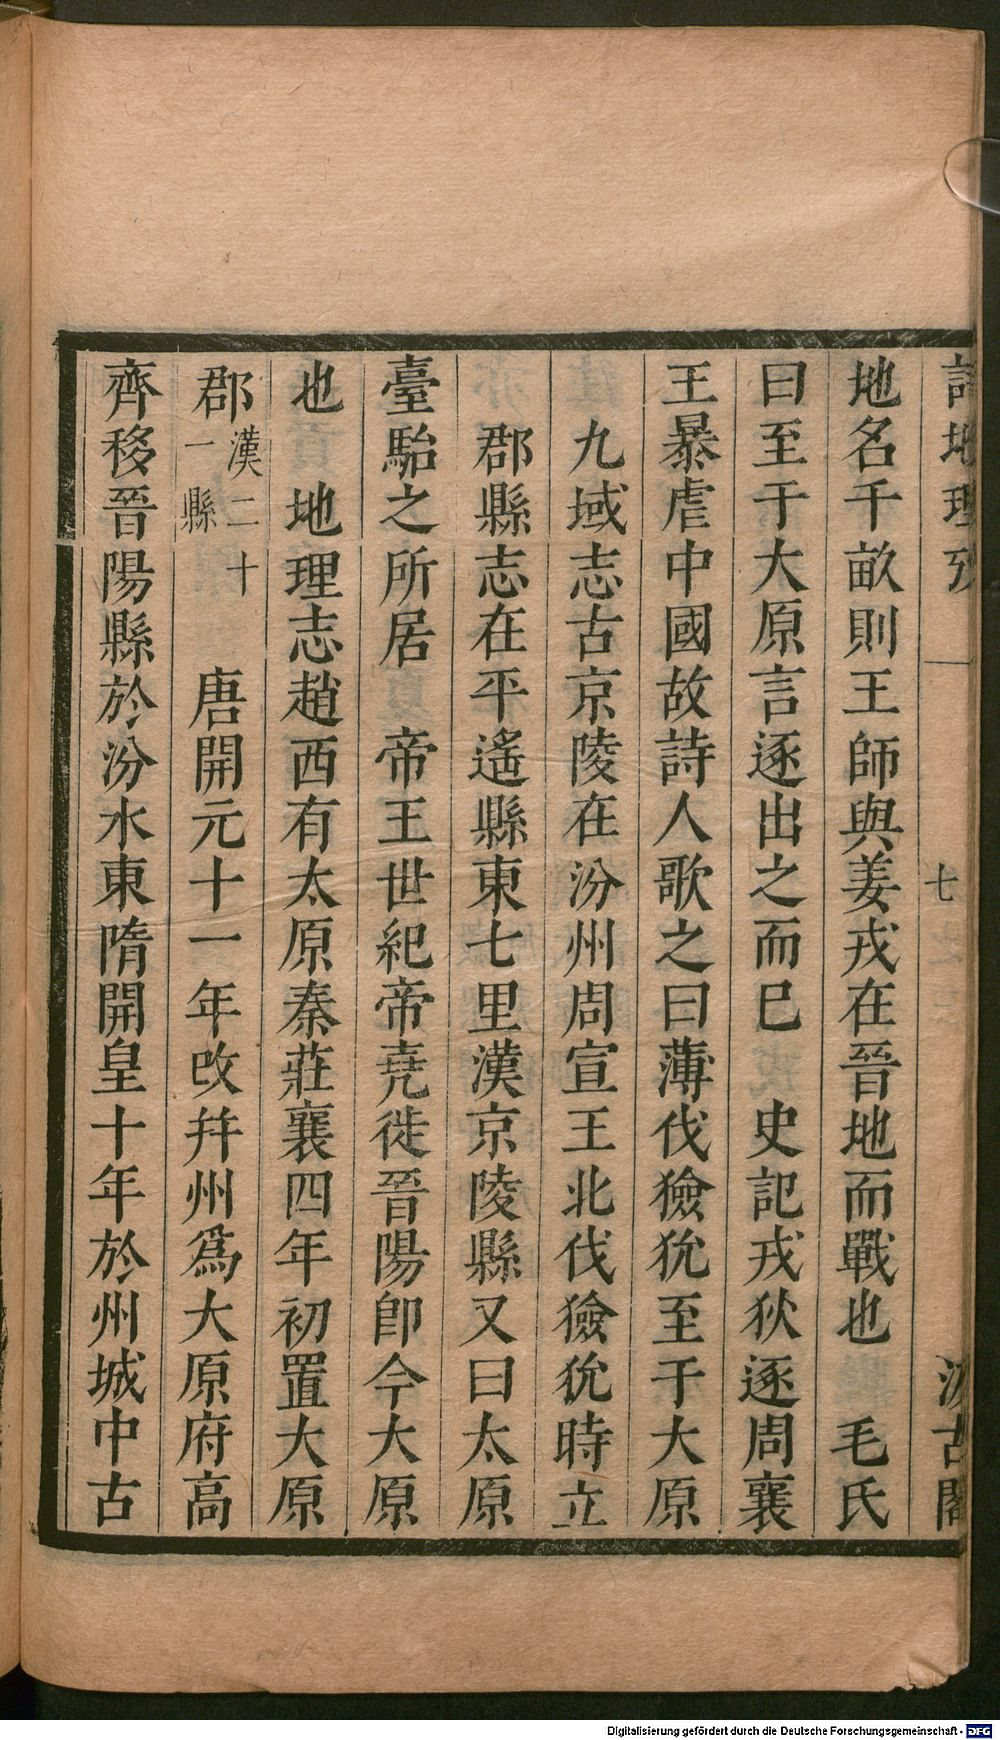 詩地理攷 一 七 汲古閣
地名千畝則王師與姜戎在晉地而戰也 毛氏
曰至于大原言逐出之而已 史記戎狄逐周襄
王暴虐中國故詩人歌之曰薄伐獫狁至于大原
九域志古京陵在汾州周宣王北伐獫狁時立
郡縣志在平遙縣東七里漢京陵縣又曰太原
臺駘之所居 帝王世紀帝堯徙晉陽卽今大原
也 地理志趙西有太原秦莊襄四年初置大原
郡 漢二十一縣 唐開元十一年改幷州爲大原府高
齊移晉陽縣於汾水東隋開皇十年於州城中古
Digitalisierung gefördert durch die Deutsche Forschungsgemeinschaft - DFG